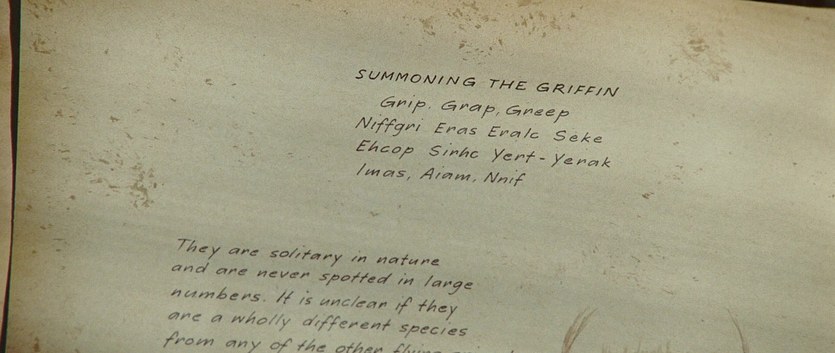 SUMMONING THE GRIFFIN
Grip. Grap, Greep
Niffgri Eras Eralc Seke
Ehcop Sirhc Yert-Yerak
Imas, Aiam. Nnif
They are solitary in nature
and are never spotted in large
numbers. It is unclear if they
are a wholly different species
from any of the other flying